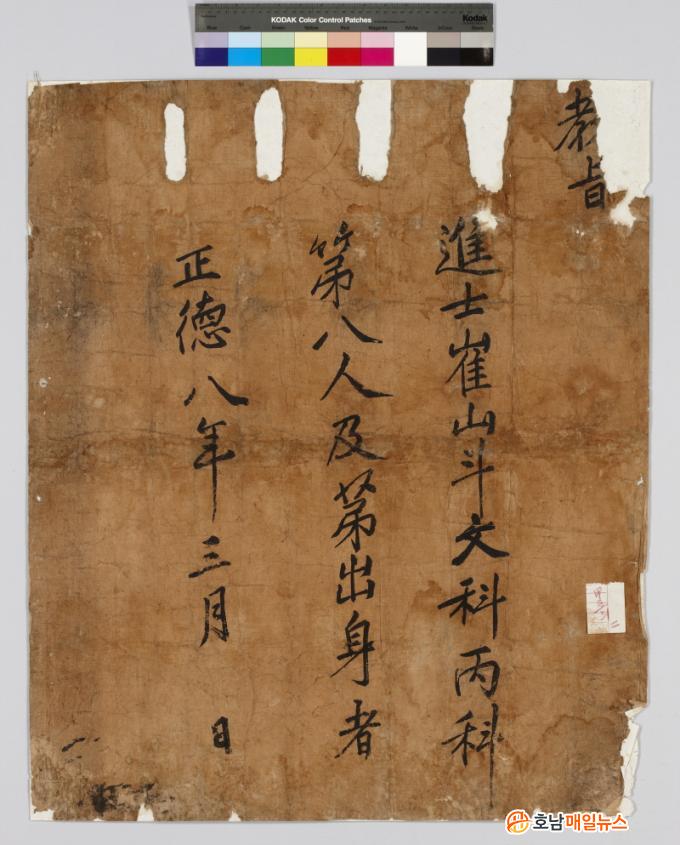 KODAK Color Control Patches
Kodak
Blue Cyan Green Yellow Red Magenta White 3/Color Black
教旨
進士崔山斗文科丙科
第八人及第出身者
正德八年三月 日
호남매일뉴스